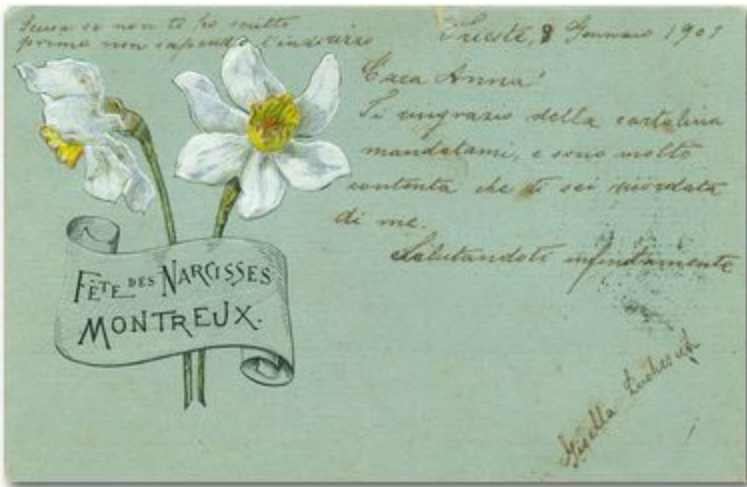 Scusa se non te ho scritto
prima non sapendo l'indirizzo
Trieste, 8 Gennaio 1901
Cara Anna!
Ti ringrazio della cartolina
mandatami, e sono molto
contenta che ti sei ricordata
di me.
Salutandoti infinitamente
Gisella
FÊTE DES NARCISSES
MONTREUX.